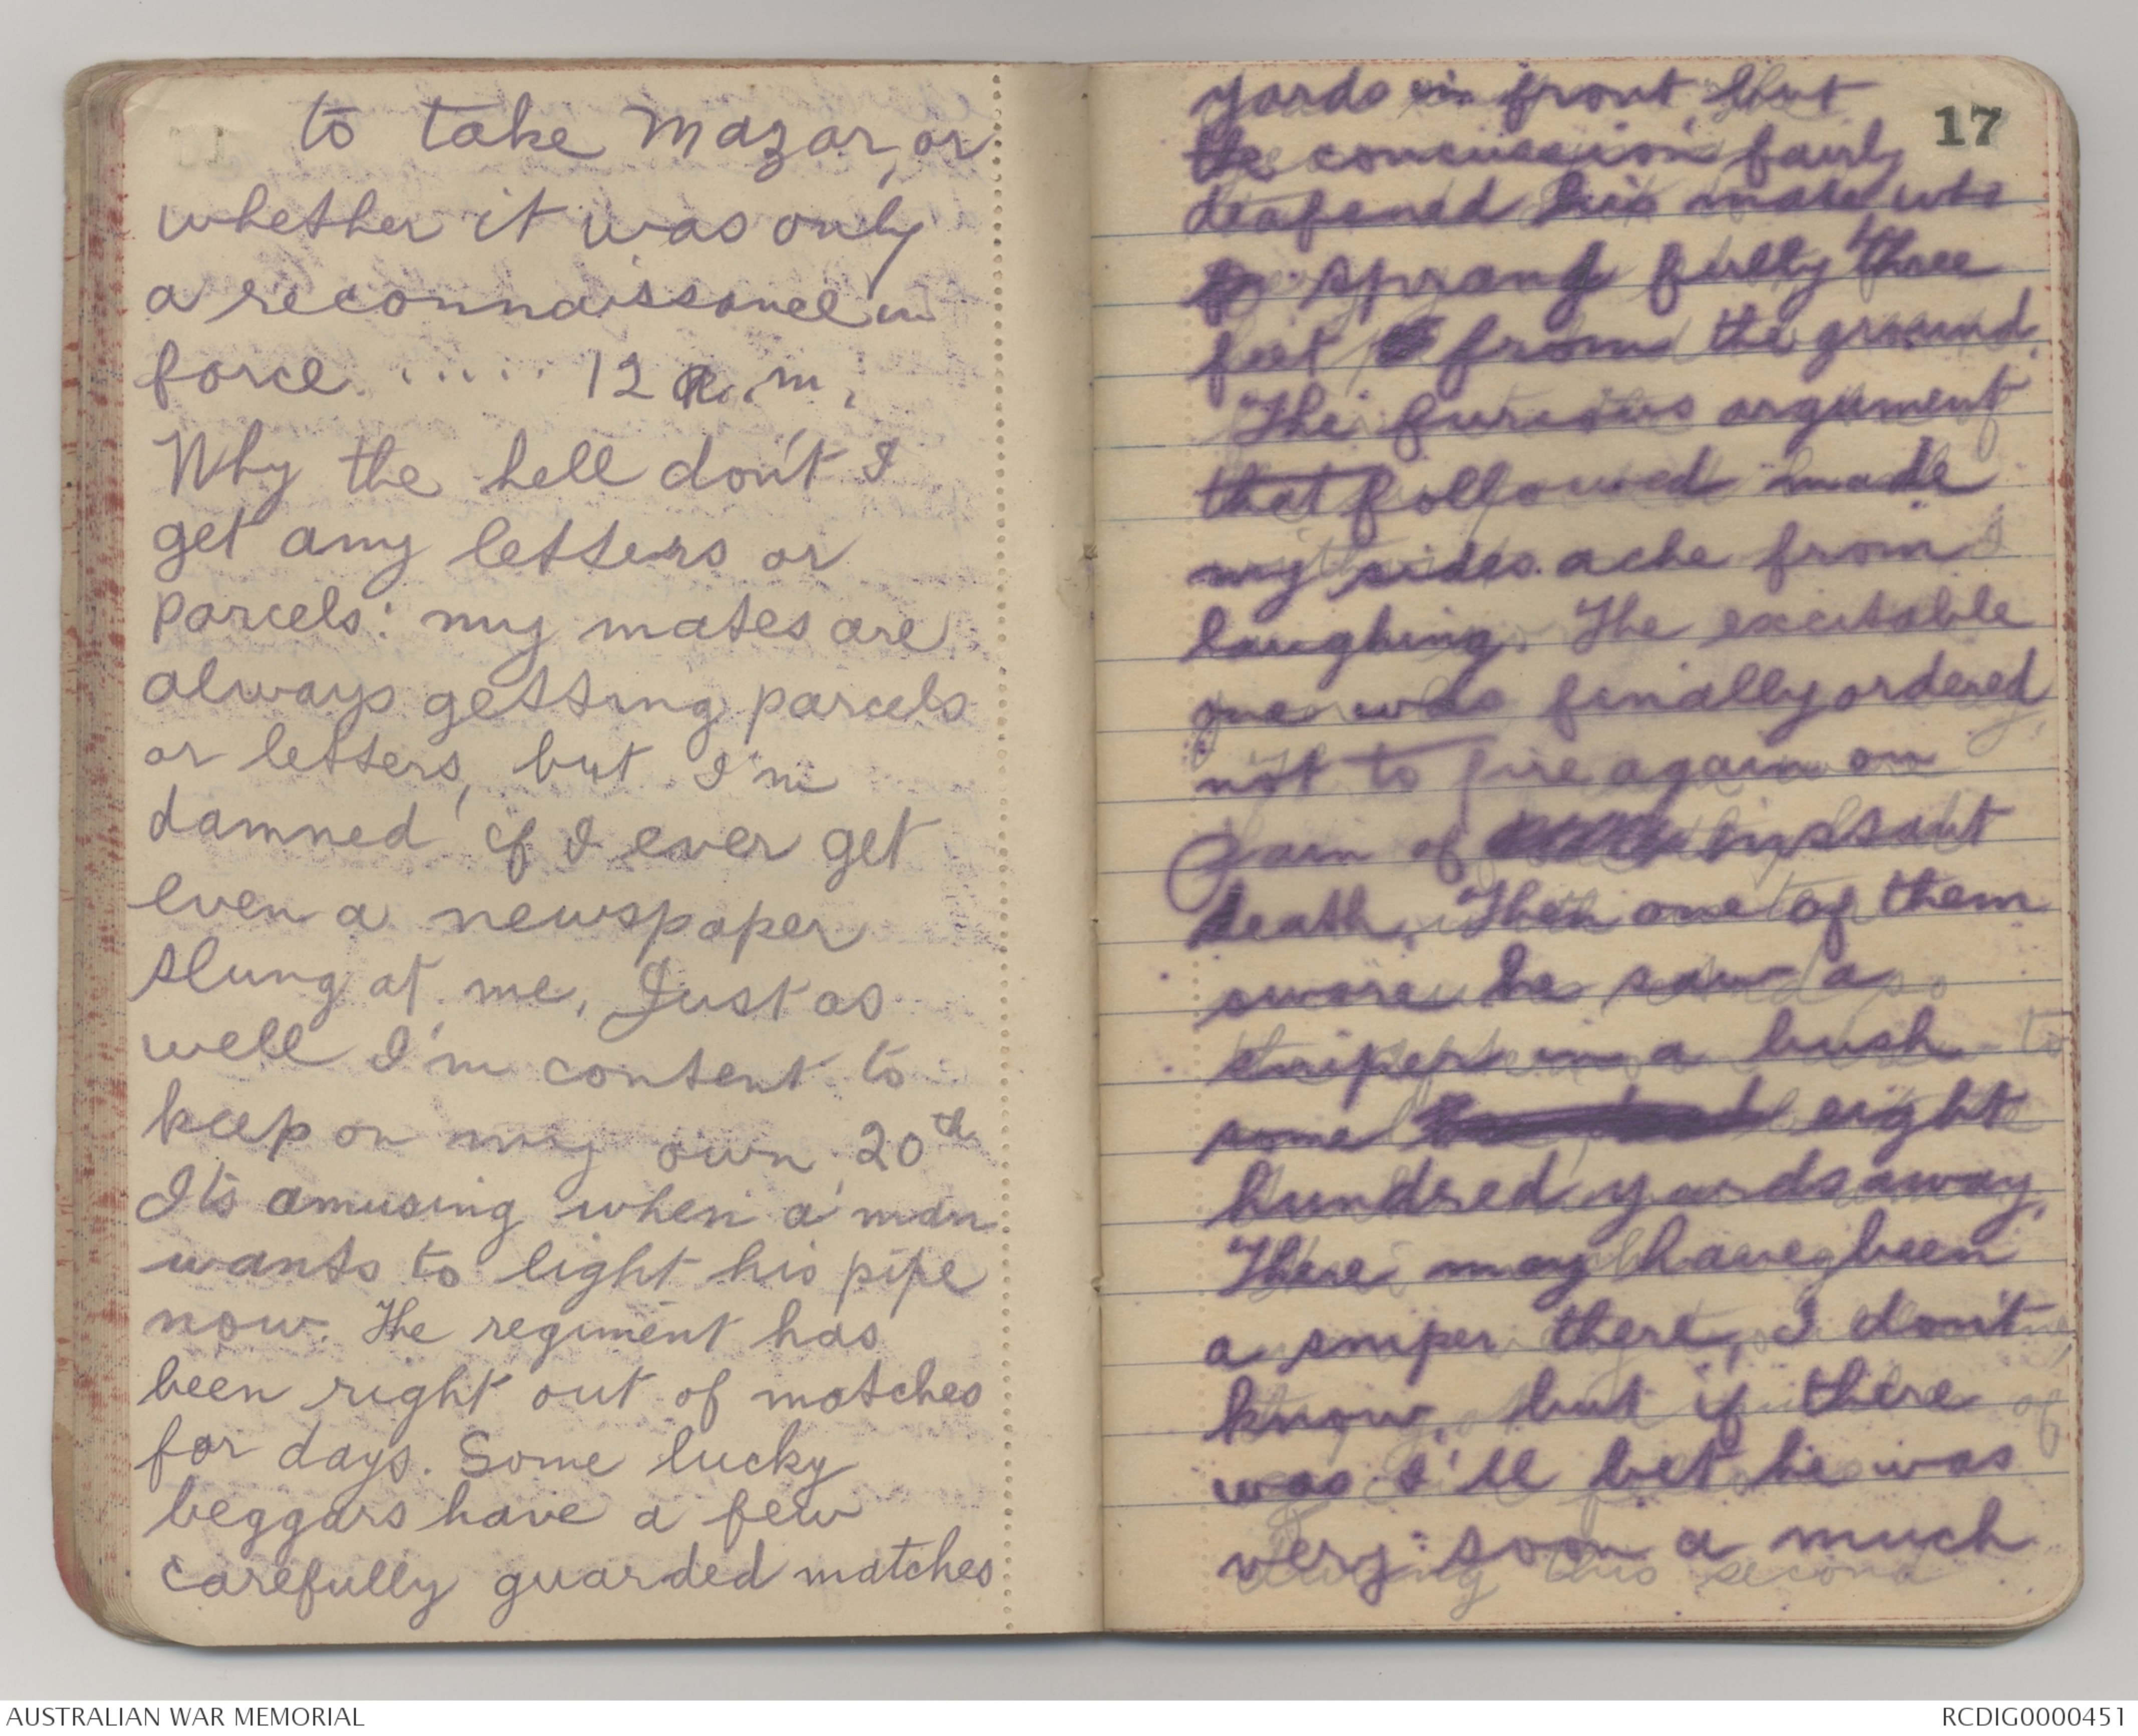 to take Mazar, or
whether it was only
a reconnaissance in
force. ..... 12 a.m.
Why the hell don't I
get any letters or
parcels: my mates are
always getting parcels
or letters, but I'm
damned if I ever get
even a newspaper
slung at me. Just as
well I'm content to
keep on my own. 20th
It's amusing when a man
wants to light his pipe
now. The regiment has
been right out of matches
for days. Some lucky
beggars have a few
carefully guarded matches
17
yards in front but
the concussion fairly
deafened his mate who
sprang fully three
feet from the ground.
The furious argument
that followed made
my sides ache from
laughing. The excitable
one was finally ordered
not to fire again on
pain of instant
death. Then one of them
swore he saw a
sniper in a bush
some eight
hundred yards away.
There may have been
a sniper there, I don't
know, but if there
was I'll bet he was
very soon a much
AUSTRALIAN WAR MEMORIAL
RCDIG0000451